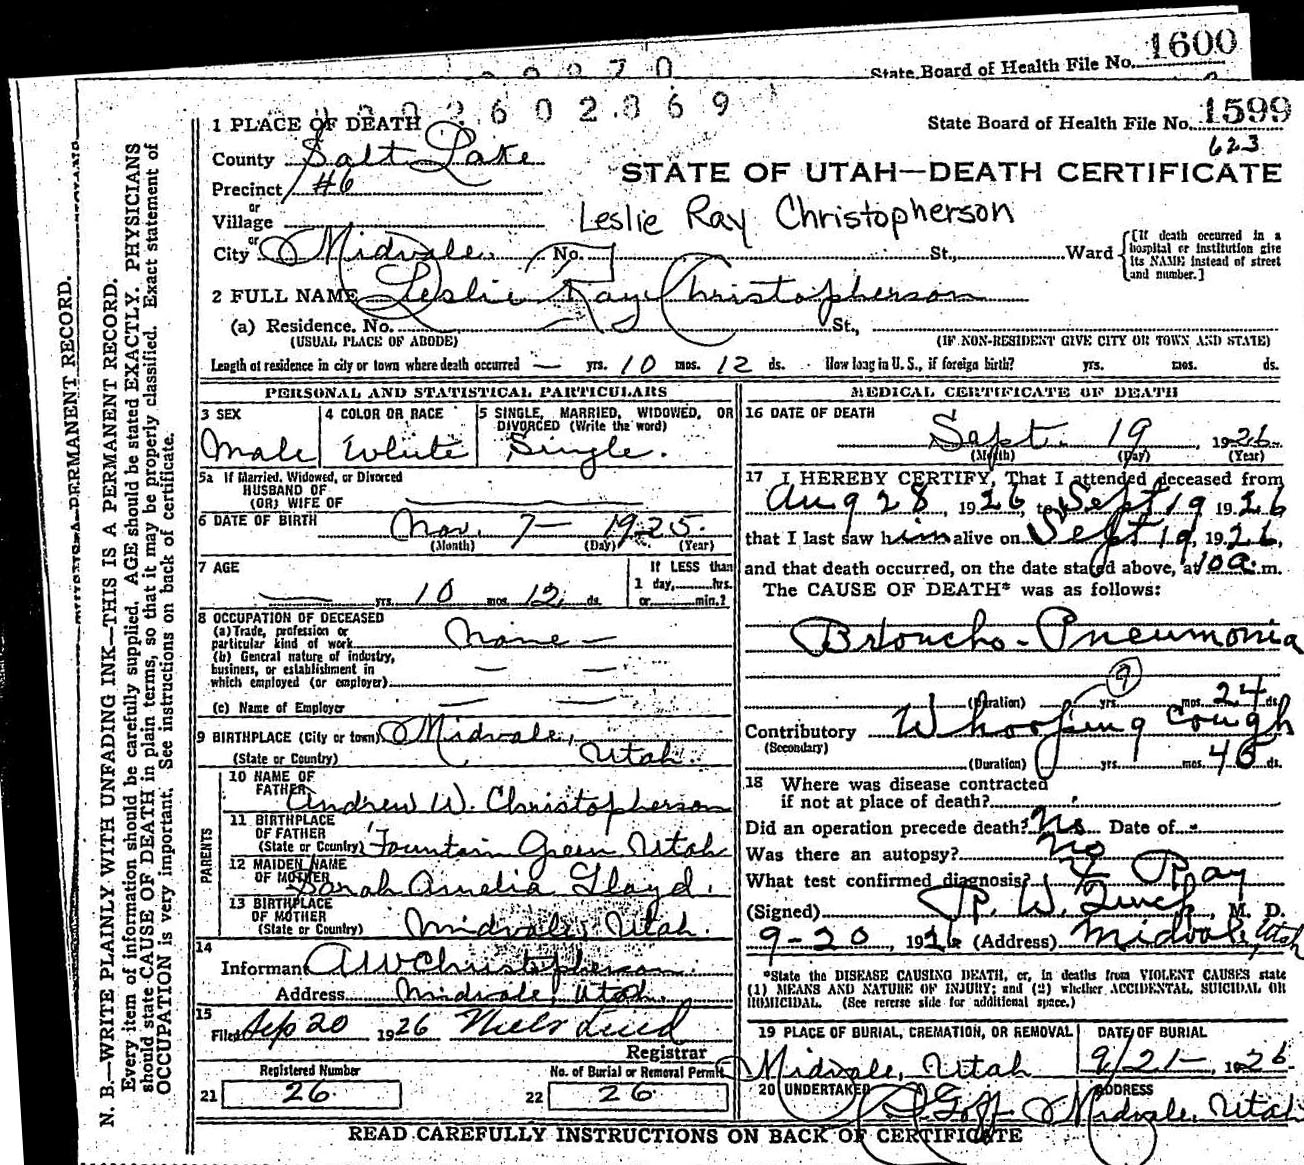 State Board of Health File No. 1600
2602869
State Board of Health File No. 1599
623
1 PLACE OF DEATH
County Salt Lake
STATE OF UTAH—DEATH CERTIFICATE
Precinct #6
or
Village
Leslie Ray Christopherson
or
City Midvale. No. St., Ward
[If death occurred in a hospital or institution give its NAME instead of street and number.]
2 FULL NAME Leslie Ray Christopherson
(a) Residence. No. St.,
(USUAL PLACE OF ABODE) (IF NON-RESIDENT GIVE CITY OR TOWN AND STATE)
Length of residence in city or town where death occurred — yrs. 10 mos. 12 ds. How long in U. S., if foreign birth? yrs. mos. ds.
PERSONAL AND STATISTICAL PARTICULARS
3 SEX
Male
4 COLOR OR RACE
White
5 SINGLE, MARRIED, WIDOWED, OR
DIVORCED (Write the word)
Single.
5a If Married, Widowed, or Divorced
HUSBAND OF
(OR) WIFE OF
6 DATE OF BIRTH Nov. 7— 1925.
(Month) (Day) (Year)
7 AGE
— yrs. 10 mos. 12 ds.
If LESS than
1 day, hrs.
or min.?
8 OCCUPATION OF DECEASED
(a) Trade, profession or
particular kind of work None —
(b) General nature of industry,
business, or establishment in
which employed (or employer)
(c) Name of Employer
9 BIRTHPLACE (City or town) Midvale,
(State or Country) Utah.
PARENTS
10 NAME OF
FATHER Andrew W. Christopherson
11 BIRTHPLACE
OF FATHER
(State or Country) Fountain Green Utah
12 MAIDEN NAME
OF MOTHER Sarah Amelia Lloyd.
13 BIRTHPLACE
OF MOTHER
(State or Country) Midvale, Utah.
14
Informant A W Christopherson
Address Midvale, Utah.
15
Filed Sep 20 1926 Niels Lind
Registrar
Registered Number
21 26
No. of Burial or Removal Permit
22 26
MEDICAL CERTIFICATE OF DEATH
16 DATE OF DEATH
Sept. 19, 1926
(Month) (Day) (Year)
17 I HEREBY CERTIFY, That I attended deceased from
Aug 28, 1926, to Sept 19 1926
that I last saw him alive on Sept 19, 1926,
and that death occurred, on the date stated above, at 10 a. m.
The CAUSE OF DEATH* was as follows:
Broncho-Pneumonia
9
(Duration) yrs. mos. 24 ds.
Contributory Whooping cough
(Secondary)
(Duration) yrs. mos. 45 ds.
18 Where was disease contracted
if not at place of death?
Did an operation precede death? No Date of
Was there an autopsy? No
What test confirmed diagnosis? X Ray
(Signed) P. W., M. D.
9-20, 1926 (Address) Midvale, Utah
*State the DISEASE CAUSING DEATH, or, in deaths from VIOLENT CAUSES state
(1) MEANS AND NATURE OF INJURY; and (2) whether ACCIDENTAL, SUICIDAL OR
HOMICIDAL. (See reverse side for additional space.)
19 PLACE OF BURIAL, CREMATION, OR REMOVAL
Midvale, Utah
DATE OF BURIAL
9/21—, 1926
20 UNDERTAKER
Goff
ADDRESS
Midvale, Utah
READ CAREFULLY INSTRUCTIONS ON BACK OF CERTIFICATE
PERMANENT RECORD.
N. B.—WRITE PLAINLY WITH UNFADING INK—THIS IS A PERMANENT RECORD.
Every item of information should be carefully supplied. AGE should be stated EXACTLY. PHYSICIANS
should state CAUSE OF DEATH in plain terms, so that it may be properly classified. Exact statement of
OCCUPATION is very important. See instructions on back of certificate.